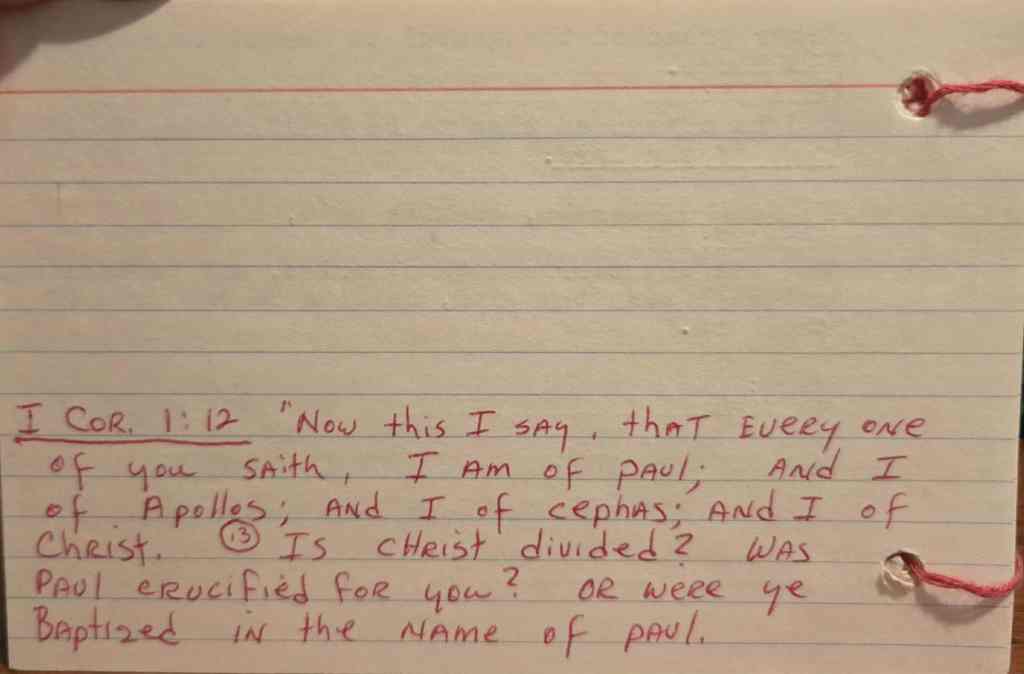 I COR. 1:12 "Now this I SAY, thAT EVERY ONE
of you SAith, I AM of PAUL; ANd I
of Apollos; ANd I of cephAS; ANd I of
ChRist. 13 IS cHRist divided? WAS
PAUl cRUcified foR you? OR weRe ye
BAptized iN the NAMe of PAUl.